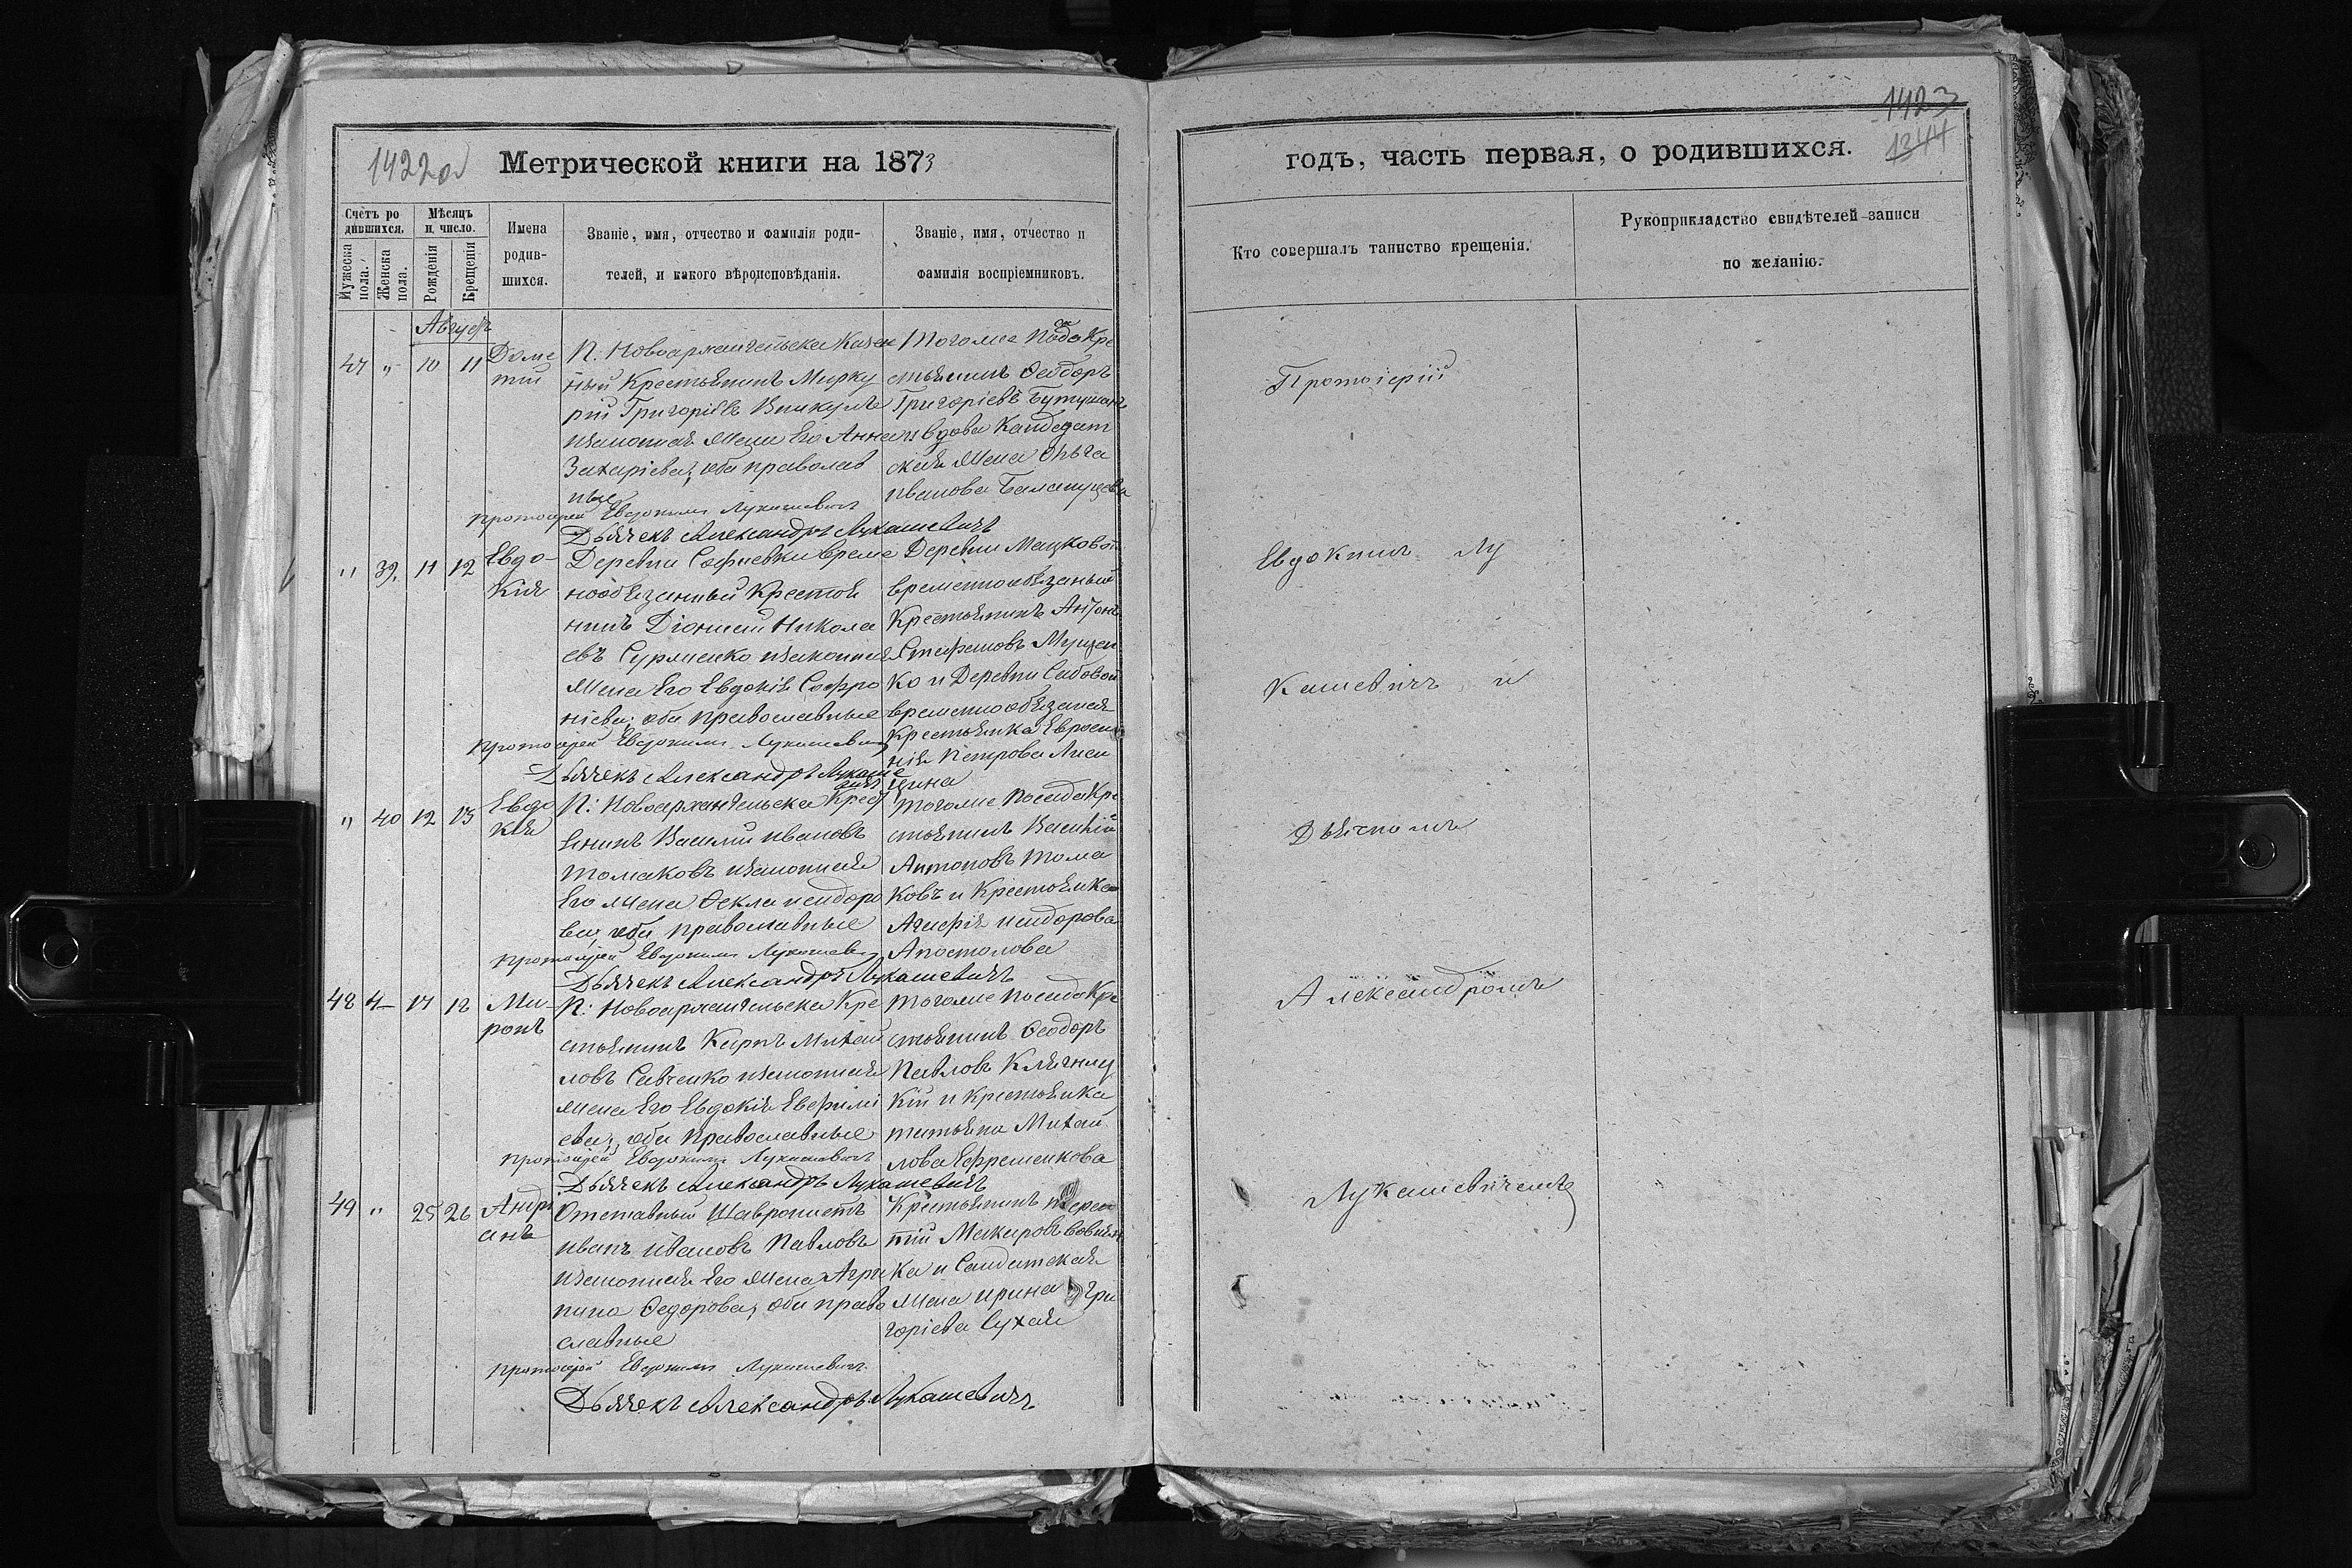 1422об
Метрической книги на 1873
Счетъ ро
дившихся.
Мѣсяцъ
и число.
Мужеска
пола.
Женска
пола.
Рожденія
Крещенія
Имена
родив-
шихся.
Званіе, имя, отчество и фамилія роди-
телей, и какого вѣроисповѣданія.
Званіе, имя, отчество и
фамилія воспріемниковъ.
Августъ
47 " 10 11
Доме
тій
П. Новоархангельска Казен
ный Крестьянинъ Мирку
рій Григоріевъ
изаконная Жена Его Анна
Захаріева, оба православ
ные
Тогоже Посада Кре
стьянинъ Ѳеодоръ
Григоріевъ
и вдова Кандедат
ская Жена Ольга
иванова
Протоіерей Евдокимъ Лукашевичъ
Дьячекъ Александръ Лукашевичъ
" 39. 11 12
Евдо-
кія
Деревни Софиевки Време
нообязанный Крестья
нинъ Діонисій Никола
евъ Сурженко изаконная
Жена Его Евдокія Софро
ніева, оба православные
Деревни Мацковой
временнообязаный
Крестьянинъ Антонъ
Стефановъ Мущен
ко и Деревни Садовой
временнообязаная
Крестьянка Евросин
нія Петрова Лиси
цина
Протоіерей Евдокимъ Лукашевичъ
Дьячекъ Александръ Лукаше
вичъ
" 40 12 13
Евдо
кія
П: Новоархангельска Крест
янинъ Василій ивановъ
Томаковъ изаконная
Его жена Ѳекла исидоро
ва, оба православные
Тогоже Посада Кре
стьянинъ Василій
Антоновъ Тома
ковъ и Крестьянка
Агафія исидорова
Апостолова
Протоіерей Евдокимъ Лукашевичъ
Дьячекъ Александръ Лукашевичъ
48 17 18
Ми-
ронъ
П: Новоархангельска Кре
стьянинъ Карпъ Михай
ловъ Савченко изаконная
жена Его Евдокія Евфимі
ева, оба Православные
Тогоже Посада Кре
стьянинъ Ѳеодоръ
Павловъ Клячниц
кій и Крестьянка
татьяна Михай
лова Ефременкова
Протоіерей Евдокимъ Лукашевичъ
Дьячекъ Александръ Лукашевичъ
49 " 25 26
Андрі
анъ
Отставный
иванъ ивановъ Павловъ
изаконная Его Жена Агри
пина Ѳедорова, оба право
славные
Крестьянинъ Терен
тій Макаровъ
ка и Солдатская
Жена ирина Гри
горіева Сухая
Протоіерей Евдокимъ Лукашевичъ
Дьячекъ Александръ Лукашевичъ
1423
1344
годъ, часть первая, о родившихся.
Кто совершалъ таинство крещенія.
Рукоприкладство свидѣтелей записи
по желанію.
Протоіерій
Евдокимъ Лу
кашевичъ и
Дьячкомъ
Александромъ
Лукашевичемъ